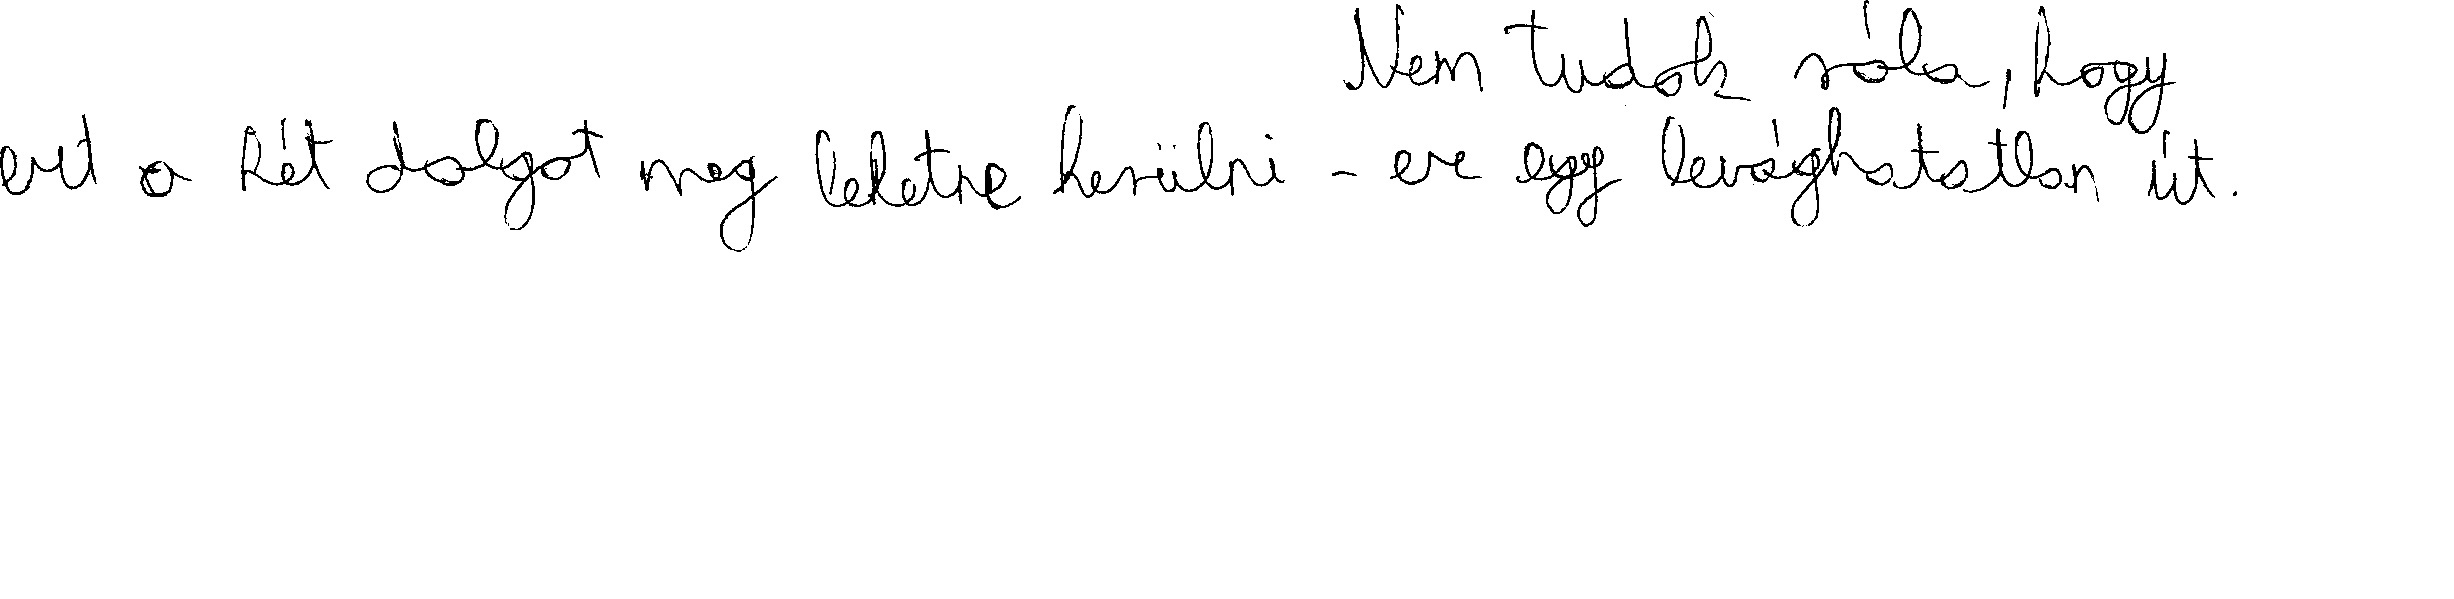 Nem tudok róla, hogy
ezt a két dolgot meg lehetne kerülni - ez egy levághatatlan út.